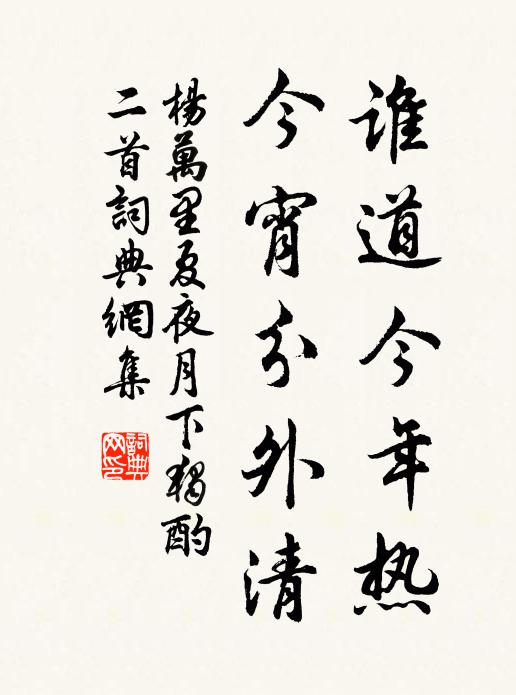 谁道今年热
今宵分外清
楊萬里夏夜月下獨酌
二首詞典網集
詞典網印